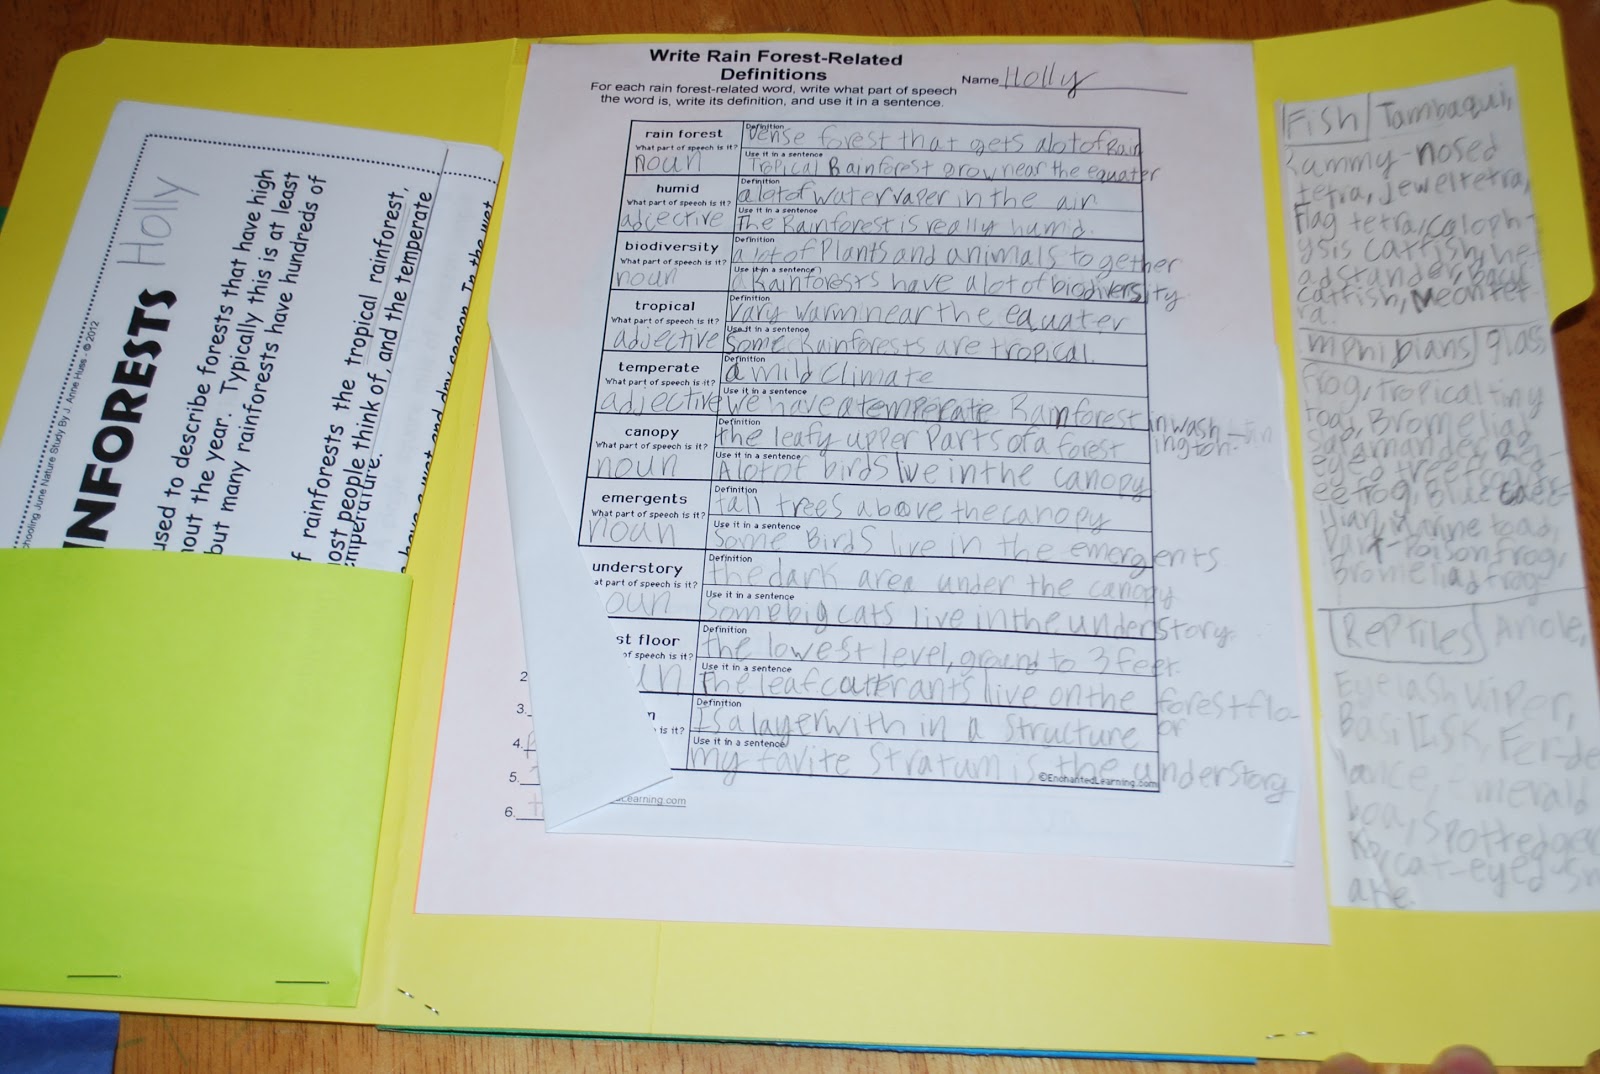 chooling June Nature Study By J. Anne Huss - © 2012
INFORESTS Holly
used to describe forests that have high
hout the year. Typically this is at least
but many rainforests have hundreds of
f rainforests the tropical rainforest,
ost people think of, and the temperate
emperature.
wet and dry season. In the wet
Write Rain Forest-Related
Definitions
Name Holly
For each rain forest-related word, write what part of speech
the word is, write its definition, and use it in a sentence.
rain forest
What part of speech is it?
noun
Definition
Dense forest that gets alotof Rain
Use it in a sentence
Tropical Rainforest grow near the equater
humid
What part of speech is it?
adjective
Definition
a lot of water vaper in the air
Use it in a sentence
The Rainforest is really humid.
biodiversity
What part of speech is it?
noun
Definition
a lot of Plants and animals together
Use it in a sentence
Rainforests have a lot of biodiversity
tropical
What part of speech is it?
adjective
Definition
Vary warm near the equater
Use it in a sentence
Some Rainforests are tropical.
temperate
What part of speech is it?
adjective
Definition
a mild climate
Use it in a sentence
We have a temperate Rainforest in wash-
ington.
canopy
What part of speech is it?
noun
Definition
the leafy upper parts of a forest
Use it in a sentence
A lot of birds live in the canopy
emergents
What part of speech is it?
noun
Definition
tall trees above the canopy
Use it in a sentence
Some Birds live in the emergents
understory
at part of speech is it?
oun
Definition
the dark area under the canopy
Use it in a sentence
Some big cats live in the understory.
st floor
of speech is it?
un
Definition
the lowest level, ground to 3 feet.
Use it in a sentence
the leafcatter ants live on the forest flo-
or
is it?
Definition
Is a layer with in a structure
Use it in a sentence
my favite Stratum is the understory
©EnchantedLearning.com
Learning.com
2
3.
4.
5.
6.
Fish Tambaqui,
Rummy-nosed
tetra, jewel tetra,
Flag tetra, caloph-
ysis catfish, he-
adstander,
catfish, Neon tet-
ra.
mphibians glass
frog, tropical tiny
toad, Bromeliad
salamander, Red-
eyed treefrog,
eefrog, Blue caec-
ilian, marine toad,
Dart-Poison frog,
Bromeliad frog
Reptiles Anole,
Eyelash Viper,
Basilisk, Fer-de-
lance, Emerald
boa, Spotted gec-
ko, cat-eyed sn-
ake.